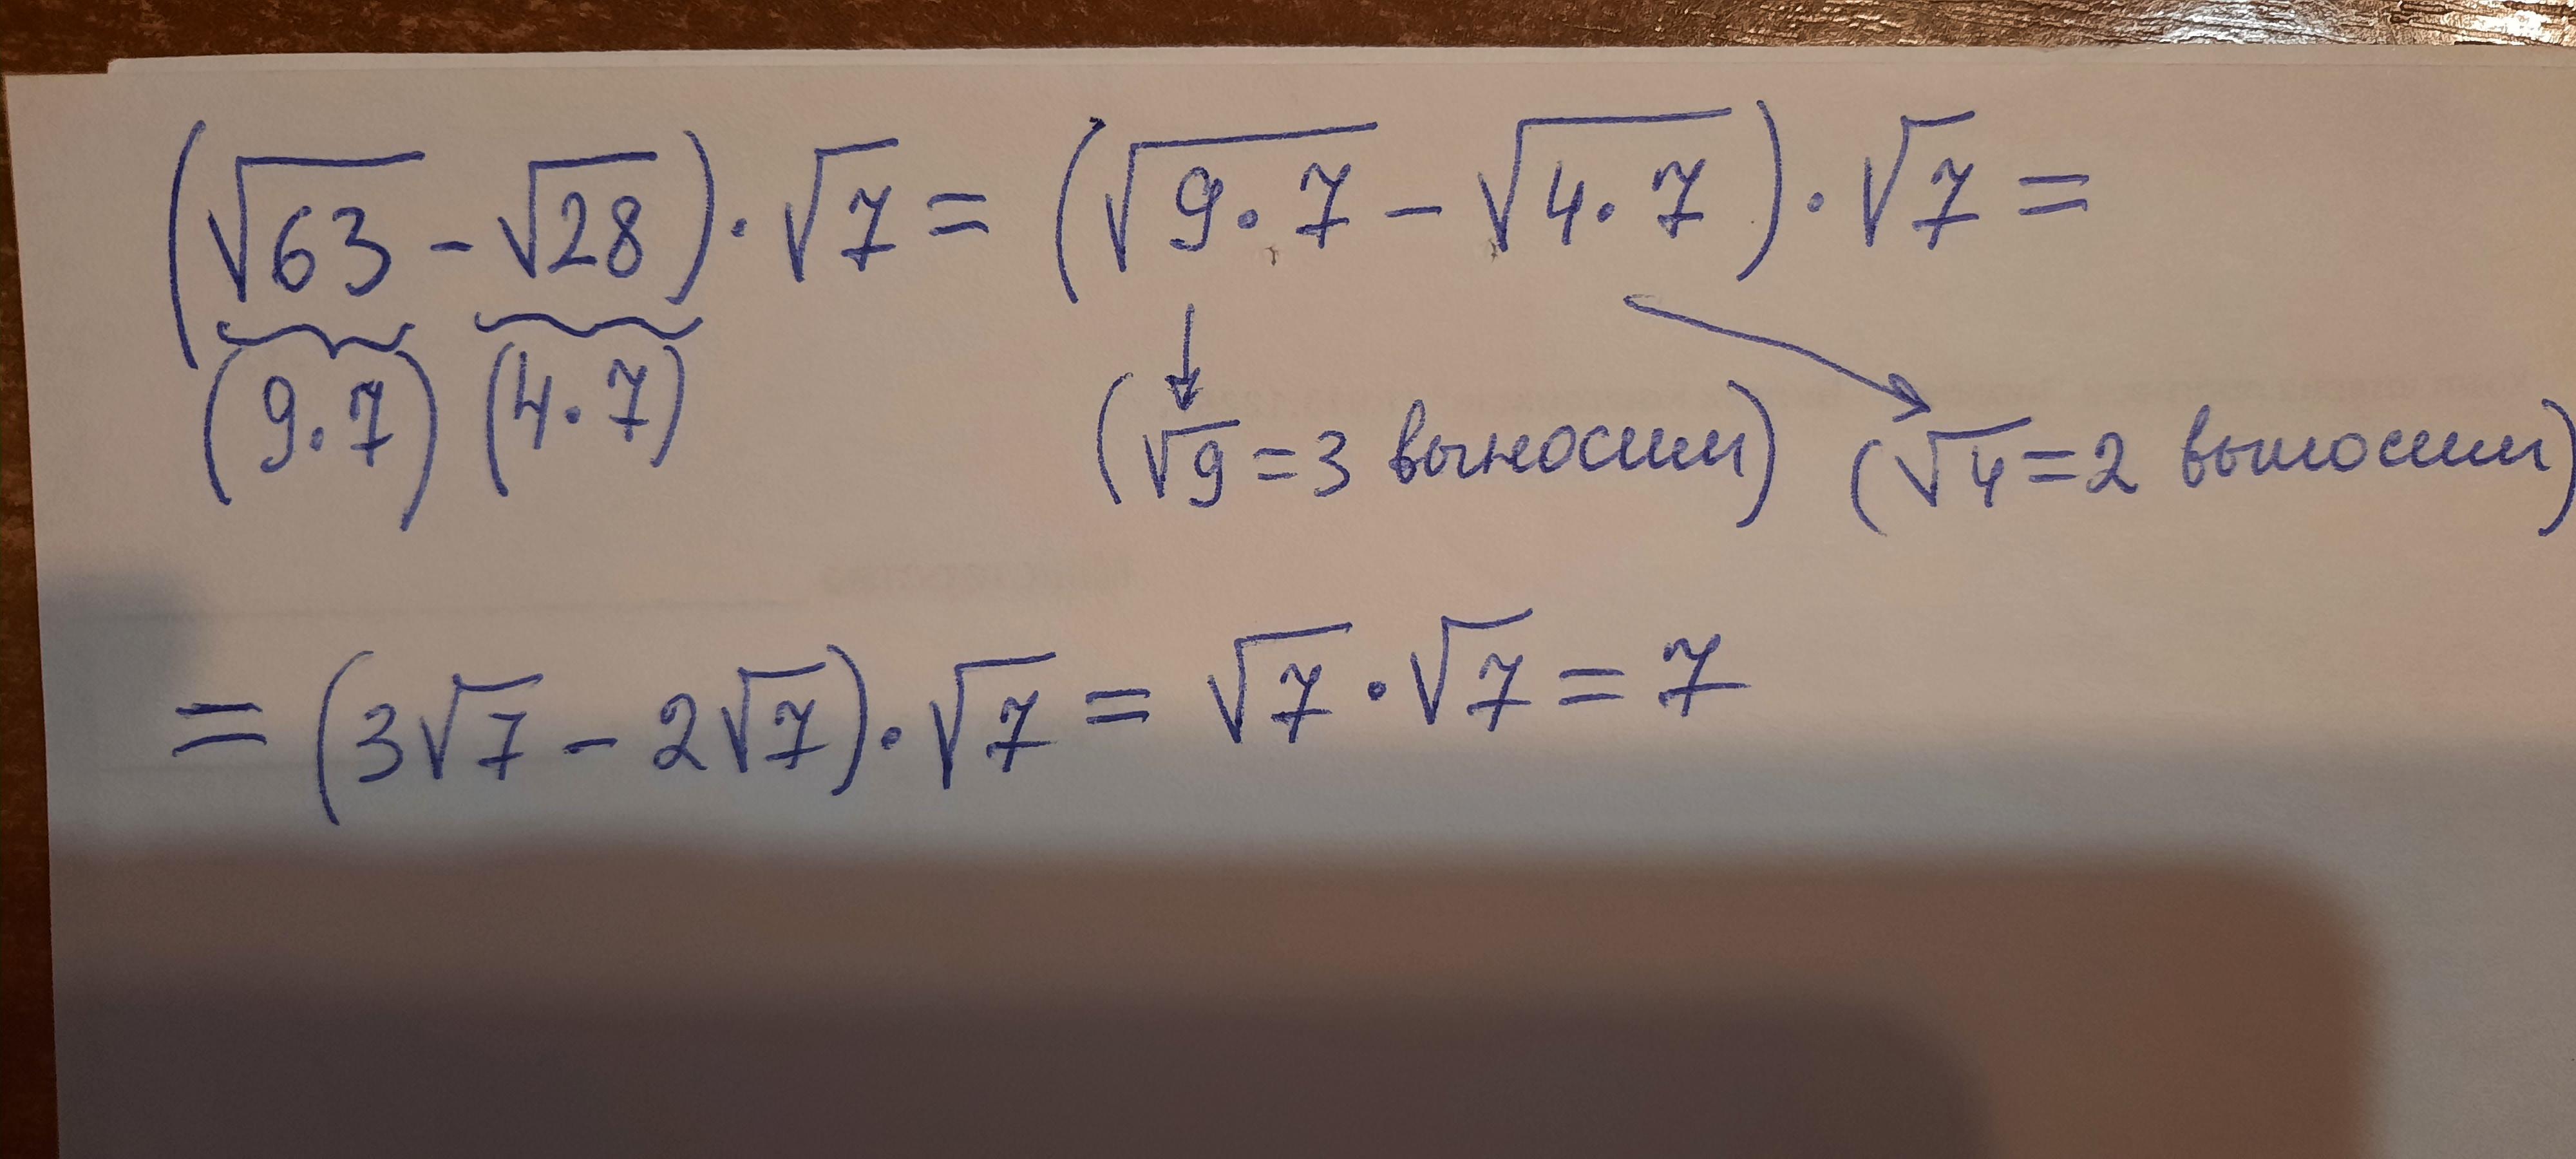 (√63 - √28) · √7 = (√9·7 - √4·7) · √7 =
(9·7) (4·7) (√9 = 3 выносим) (√4 = 2 выносим)
= (3√7 - 2√7) · √7 = √7 · √7 = 7